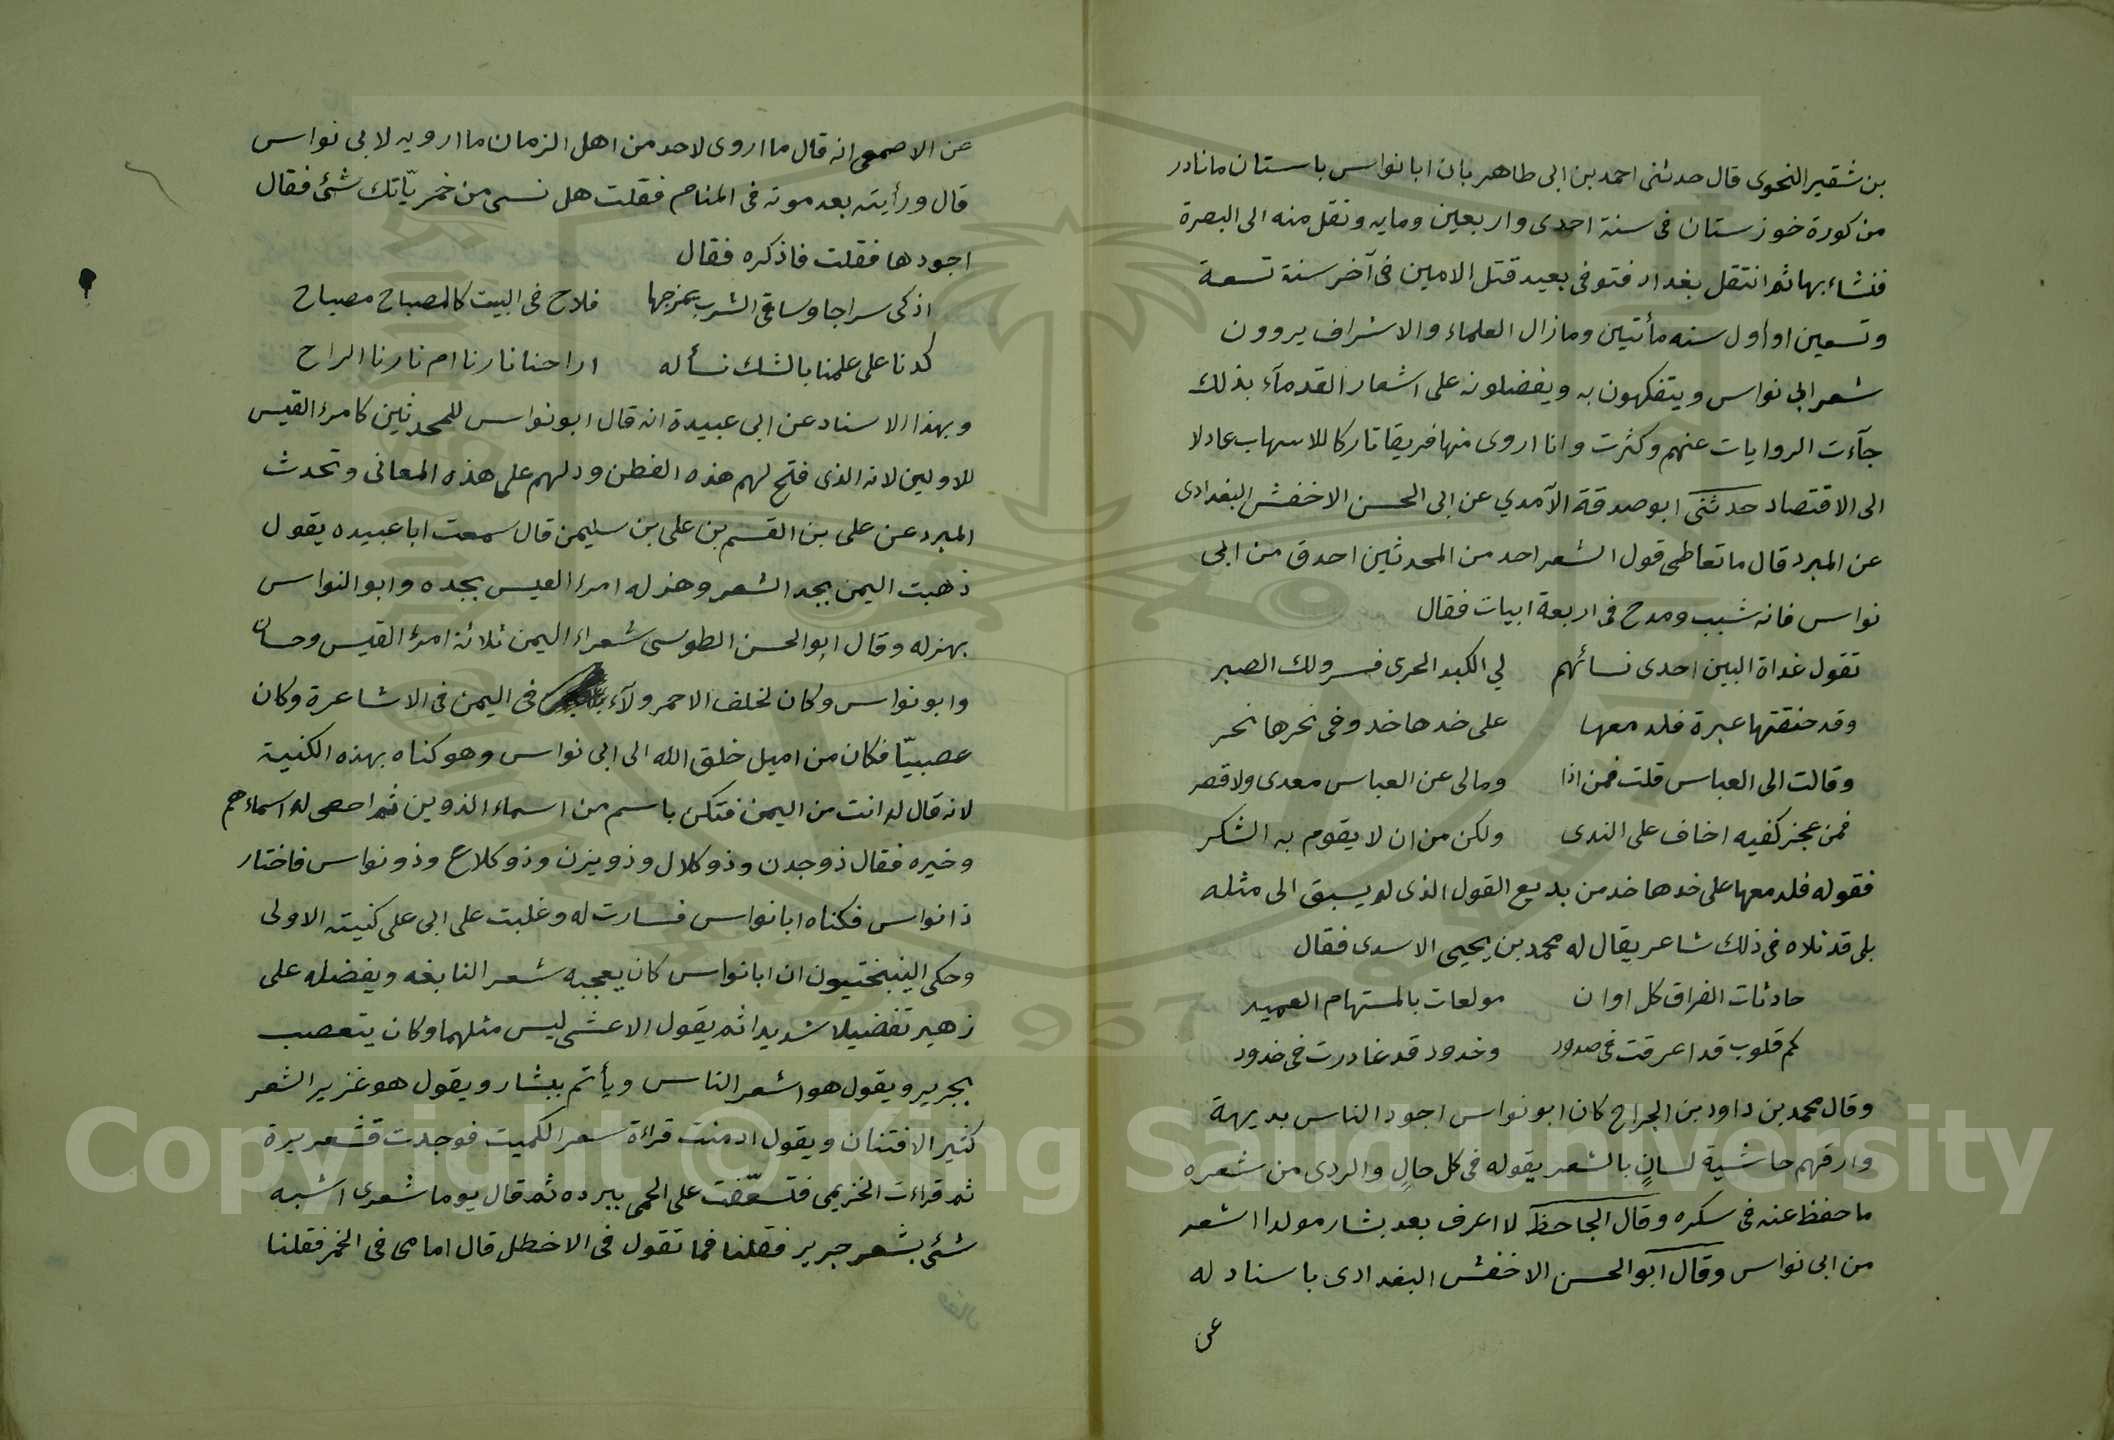 بن شقير النحوى قال حدثنى احمد بن ابى طاهر بان ابا نواس باستان مانادر
من كورة خوزستان فى سنة احدى واربعين ومايه ونقل منه الى البصرة
فنشاء بها ثم انتقل بغداد فتوفى بعيد قتل الامين فى آخر سنة تسعة
وتسعين او اول سنه مأتين ومازال العلماء والاشراف يروون
شعر ابى نواس ويتفكهون به ويفضلونه على اشعار القدمآء بذلك
جآءت الروايات عنهم وكثرت وانا اروى منها فريقا تاركا للاسهاب عادلا
الى الاقتصاد حدثنى ابو صدقة الآمدي عن ابى الحسن الاخفش البغدادى
عن المبرد قال ما تعاطى قول الشعر احد من المحدثين احدق من ابى
نواس فانه شبب ومدح فى اربعة ابيات فقال
تقول غداة البين احدى نسائهم لي الكبد الحرى فسر ولك الصبر
وقد خنقتها عبرة فلدمعها على خدها خد وفى نحرها نحر
وقالت الى العباس قلت فمن اذا ومالى عن العباس معدى ولا قصر
فمن عجز كفيه اخاف على الندى ولكن من ان لا يقوم به الشكر
فقوله فلدمعها على خدها خد من بديع القول الذى لم يسبق الى مثله
بلى قد تلاه فى ذلك شاعر يقال له محمد بن يحيى الاسدى فقال
حادثات الفراق كل اوان مولعات بالمستهام العميد
كم قلوب قد اعرقت فى صدور وخدود قد غادرت فى خدود
وقال محمد بن داود بن الجراح كان ابو نواس اجود الناس بديهة
وارقهم حاشية لسانٍ بالشعر يقوله فى كل حالٍ والردى من شعره
ما حفظ عنه فى سكره وقال الجاحظ لا اعرف بعد بشار مولدا اشعر
من ابى نواس وقال ابو الحسن الاخفش البغدادى باسناد له
عن
عن الاصمعى انه قال ما اروى لاحد من اهل الزمان ما ارويه لابى نواس
قال ورأيته بعد موته فى المنام فقلت هل نسى من خمريّاتك شئ فقال
اجودها فقلت فاذكره فقال
اذكى سراجا وساقى الشرب يمزجها فلاح فى البيت كالمصباح مصباح
كدنا على علمنا بالشك نسأله اراحنا نارنا ام نارنا الراح
وبهذا الاسناد عن ابى عبيدة انه قال ابو نواس للمحدثين كامرء القيس
للاولين لانه الذى فتح لهم هذه الفطن ودلهم على هذه المعانى وتحدث
المبرد عن على بن القسم بن على بن سليمن قال سمعت ابا عبيده يقول
ذهبت اليمن بجد الشعر وهزله امرء القيس بجده وابو النواس
بهزله وقال ابو الحسن الطوسى شعراء اليمن ثلاثة امرؤ القيس وحسان
وابو نواس وكان لخلف الاحمر ولآء فى اليمن فى الاشاعرة وكان
عصبيّا فكان من اميل خلق الله الى ابى نواس وهو كناه بهذه الكنية
لانه قال له انت من اليمن فتكن باسم من اسماء الذوين ثم احصى له اسماءهم
وخيره فقال ذو جدن وذو كلال وذو يزن وذو كلاع وذو نواس فاختار
ذا نواس فكناه ابا نواس فسارت له وغلبت على ابى على كنيته الاولى
وحكى النيبختيون ان ابا نواس كان يعجبه شعر النابغه ويفضله على
زهير تفضيلا شديدا ثم يقول الاعشى ليس مثلهما وكان يتعصب
بجرير ويقول هو اشعر الناس ويأتم ببشار ويقول هو غزير الشعر
كثير الافتنان ويقول ادمنت قراءة سعر الكميت فوجدت قشعريرة
ثم قراءت الخزيمى فتسعّفت على الحمى ببرده ثم قال يوما شعرى اشبه
شئ بشعر جرير فقلنا فما تقول فى الاخطل قال امامى فى الخمر فقلنا
فقال
Copyright © King Saud University
1957